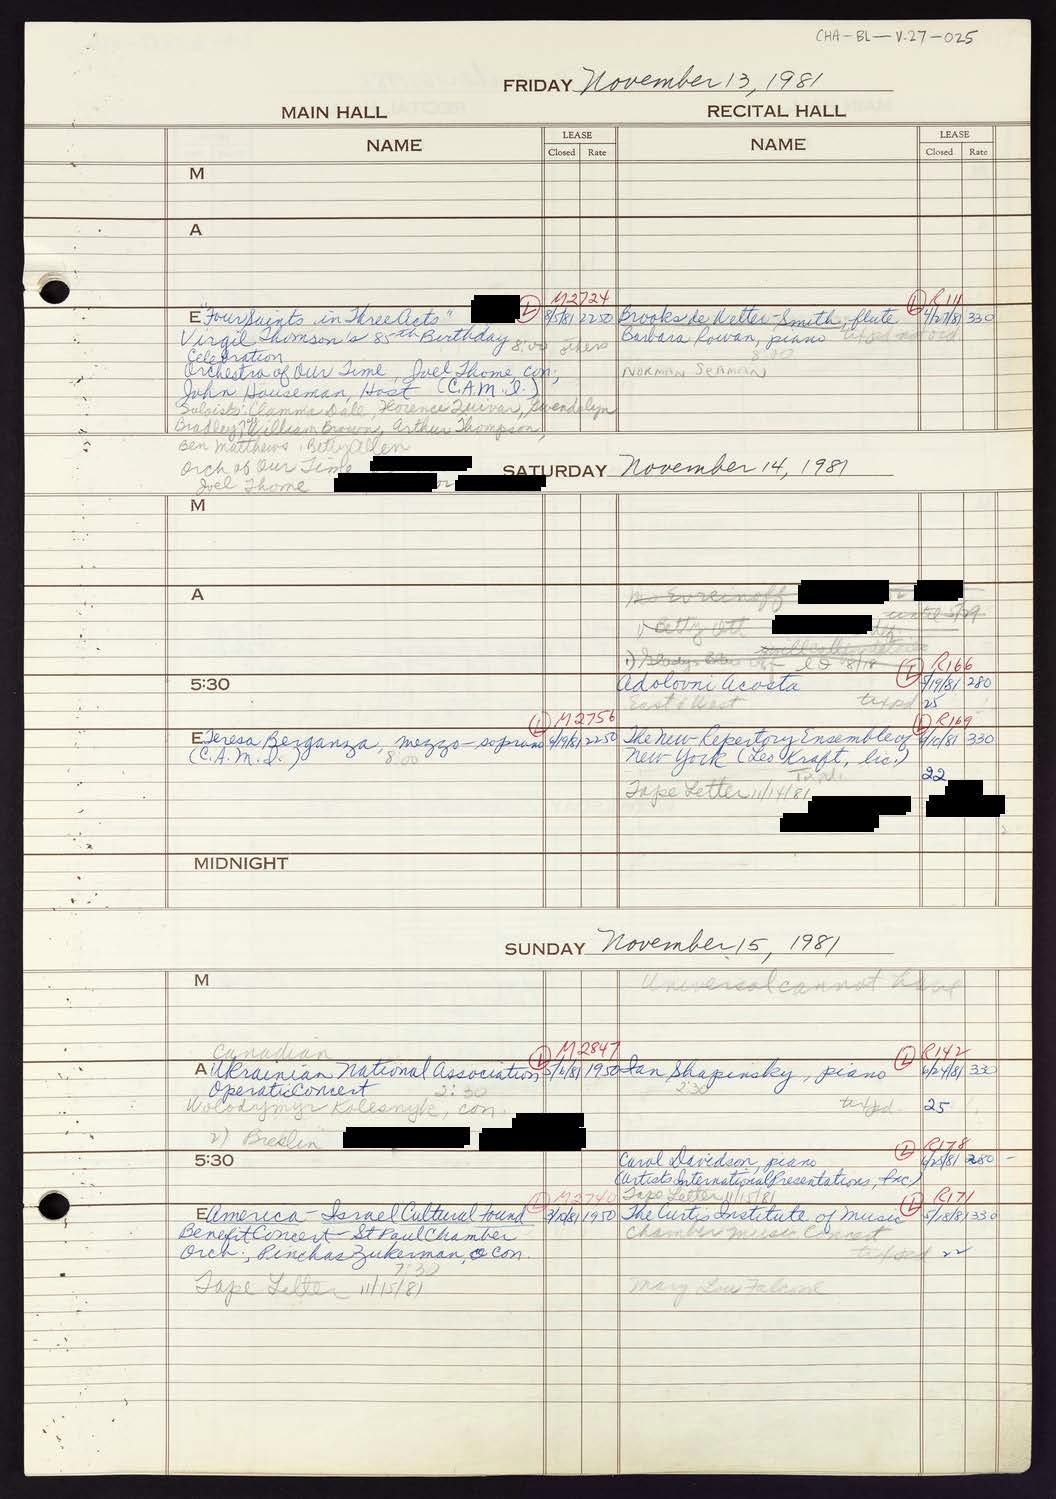 CHA-BL-V.27-025
FRIDAY November 13, 1981
MAIN HALL
RECITAL HALL
NAME
LEASE
Closed Rate
NAME
LEASE
Closed Rate
M
A
M2724
E "Four Saints in Three Acts" L 8/5/81 2250
Virgil Thomson's 85th Birthday 8:00
Celebration
Orchestra of Our Time, Joel Thome con;
John Houseman, Host (C.A.M.I.)
Soloists: Clamma Dale, Florence Quivar, Gwendolyn
Bradley, William Brown, Arthur Thompson,
Ben Matthews, Betty Allen
Orch of Our Time
Joel Thome or
L R111
Brooks de Wetter-Smith, flute 4/27/81 330
Barbara Rowan, piano
8:00
NORMAN SEAMAN
SATURDAY November 14, 1981
M
A
Betty
L R166
5:30
Adolovni Acosta 9/19/81 280
East & West 25
L M2756
E Teresa Berganza, mezzo-soprano 9/19/81 2250
(C.A.M.I.) 8:00
L R169
The New Repertory Ensemble of 9/10/81 330
New York (Leo Kraft, lic.)
22
Tape Letter 11/14/81
MIDNIGHT
SUNDAY November 15, 1981
M
Universal cannot have
Canadian
L M2847
A Ukrainian National Association 1950
Operatic Concert 2:30
Wolodymyr Kolesnyk, con.
2) Breslin
L R142
Ian Shapinsky, piano 6/24/81 330
2:30
25
5:30
L R178
Carol Davidson, piano 6/25/81 280
(Artists International Presentations, Inc.)
Tape Letter 11/15/81
L M2740
E America-Israel Cultural Found 3/10/81 1950
Benefit Concert - St Paul Chamber
Orch., Pinchas Zukerman, con.
7:30
Tape Letter 11/15/81
L R171
The Curtis Institute of Music 5/18/81 330
Chamber Music Concert
22
Mary Lou Falcone